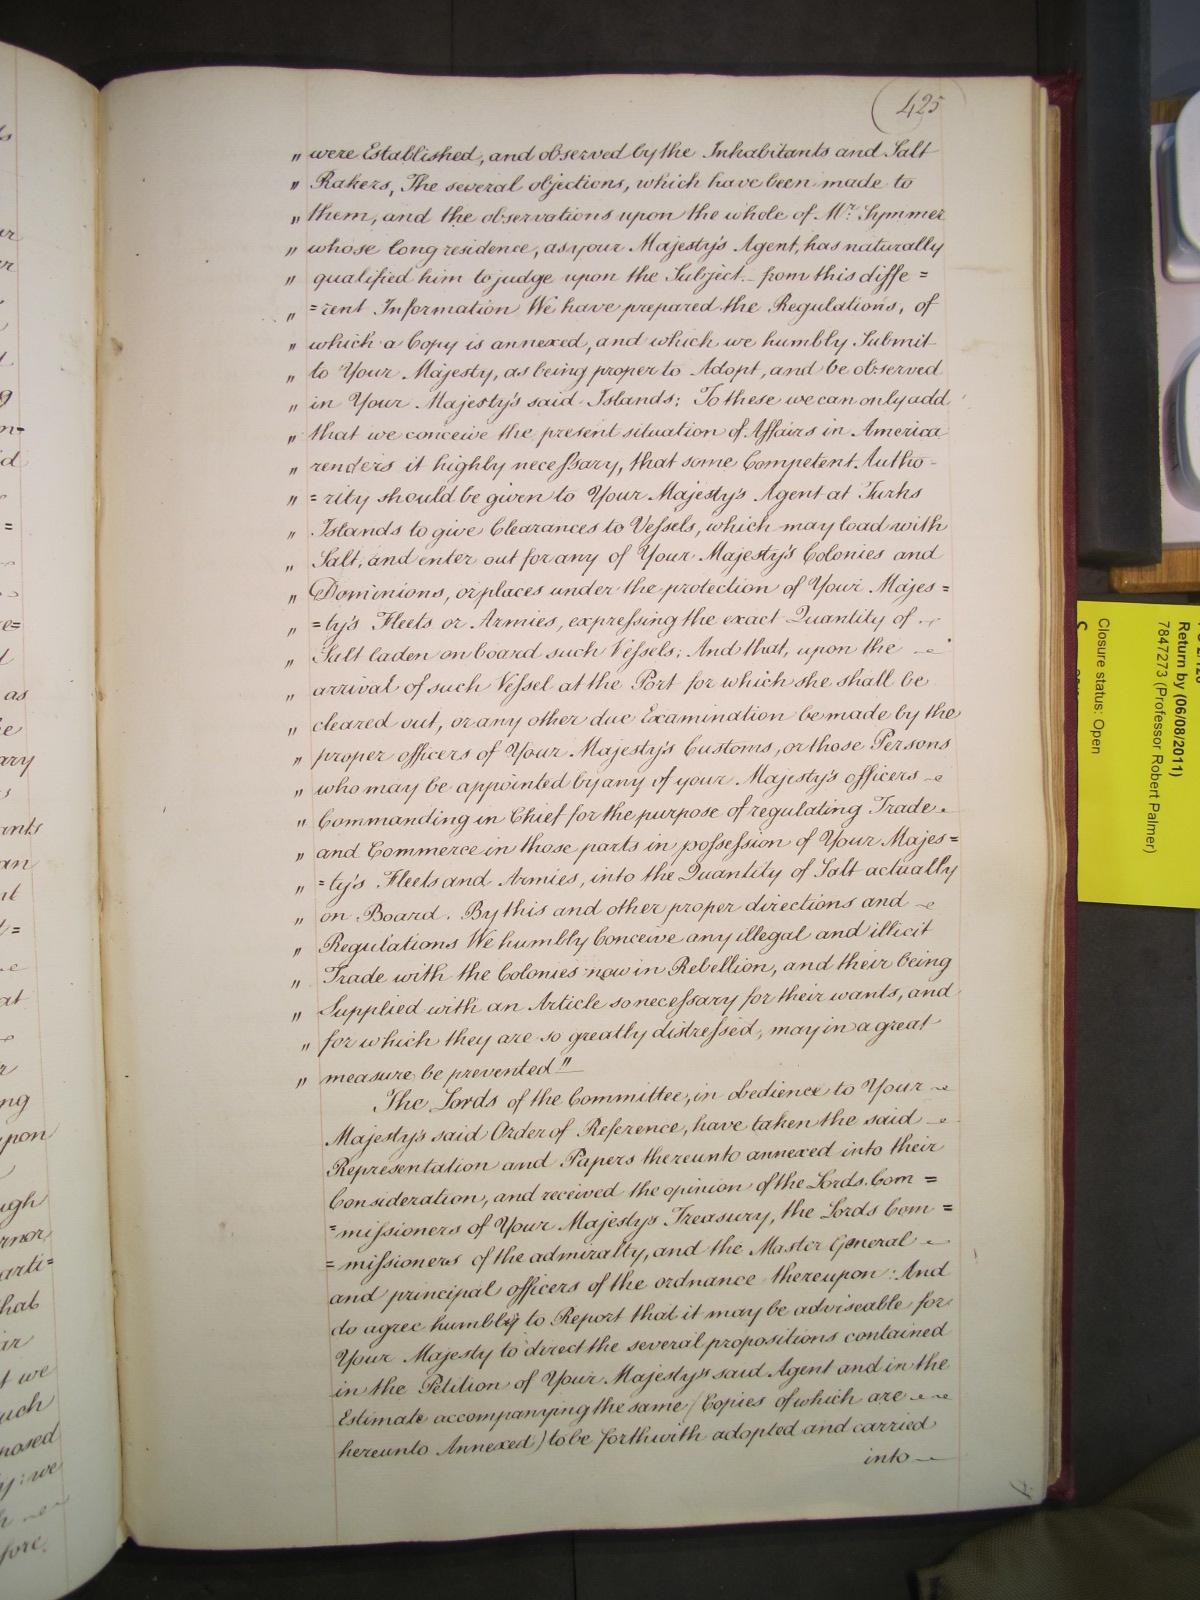 425
" were Established, and observed by the Inhabitants and Salt
" Rakers, The several objections, which have been made to
" them, and the observations upon the whole of Mr. Symmer
" whose long residence, as your Majesty's Agent, has naturally
" qualified him to judge upon the Subject. - from this diffe =
" = rent Information We have prepared the Regulations, of
" which a Copy is annexed, and which we humbly Submit
" to Your Majesty, as being proper to Adopt, and be observed
" in Your Majesty's said Islands; To these we can only add
" that we conceive the present situation of Affairs in America
" renders it highly necessary, that some Competent Autho -
" = rity should be given to Your Majesty's Agent at Turks
" Islands to give Clearances to Vessels, which may load with
" Salt, and enter out for any of Your Majesty's Colonies and
" Dominions, or places under the protection of Your Majes =
" = ty's Fleets or Armies, expressing the exact Quantity of
" Salt laden on board such Vessels; And that, upon the
" arrival of such Vessel at the Port for which she shall be
" cleared out, or any other due Examination be made by the
" proper officers of Your Majesty's Customs, or those Persons
" who may be appointed by any of your Majesty's officers
" Commanding in Chief for the purpose of regulating Trade
" and Commerce in those parts in possession of Your Majes =
" = ty's Fleets and Armies, into the Quantity of Salt actually
" on Board. By this and other proper directions and
" Regulations We humbly Conceive any illegal and illicit
" Trade with the Colonies now in Rebellion, and their being
" Supplied with an Article so necessary for their wants, and
" for which they are so greatly distressed, may in a great
" measure be prevented"
The Lords of the Committee, in obedience to Your
Majesty's said Order of Reference, have taken the said
Representation and Papers thereunto annexed into their
Consideration, and received the opinion of the Lords Com =
= missioners of Your Majesty's Treasury, the Lords Com =
= missioners of the admiralty, and the Master General
and principal officers of the ordnance thereupon: And
do agree humbly to Report that it may be adviseable for
Your Majesty to direct the several propositions contained
in the Petition of Your Majesty's said Agent and in the
Estimate accompanying the same (Copies of which are
hereunto Annexed) to be forthwith adopted and carried
into
Return by (06/08/2011)
7847273 (Professor Robert Palmer)
Closure status: Open